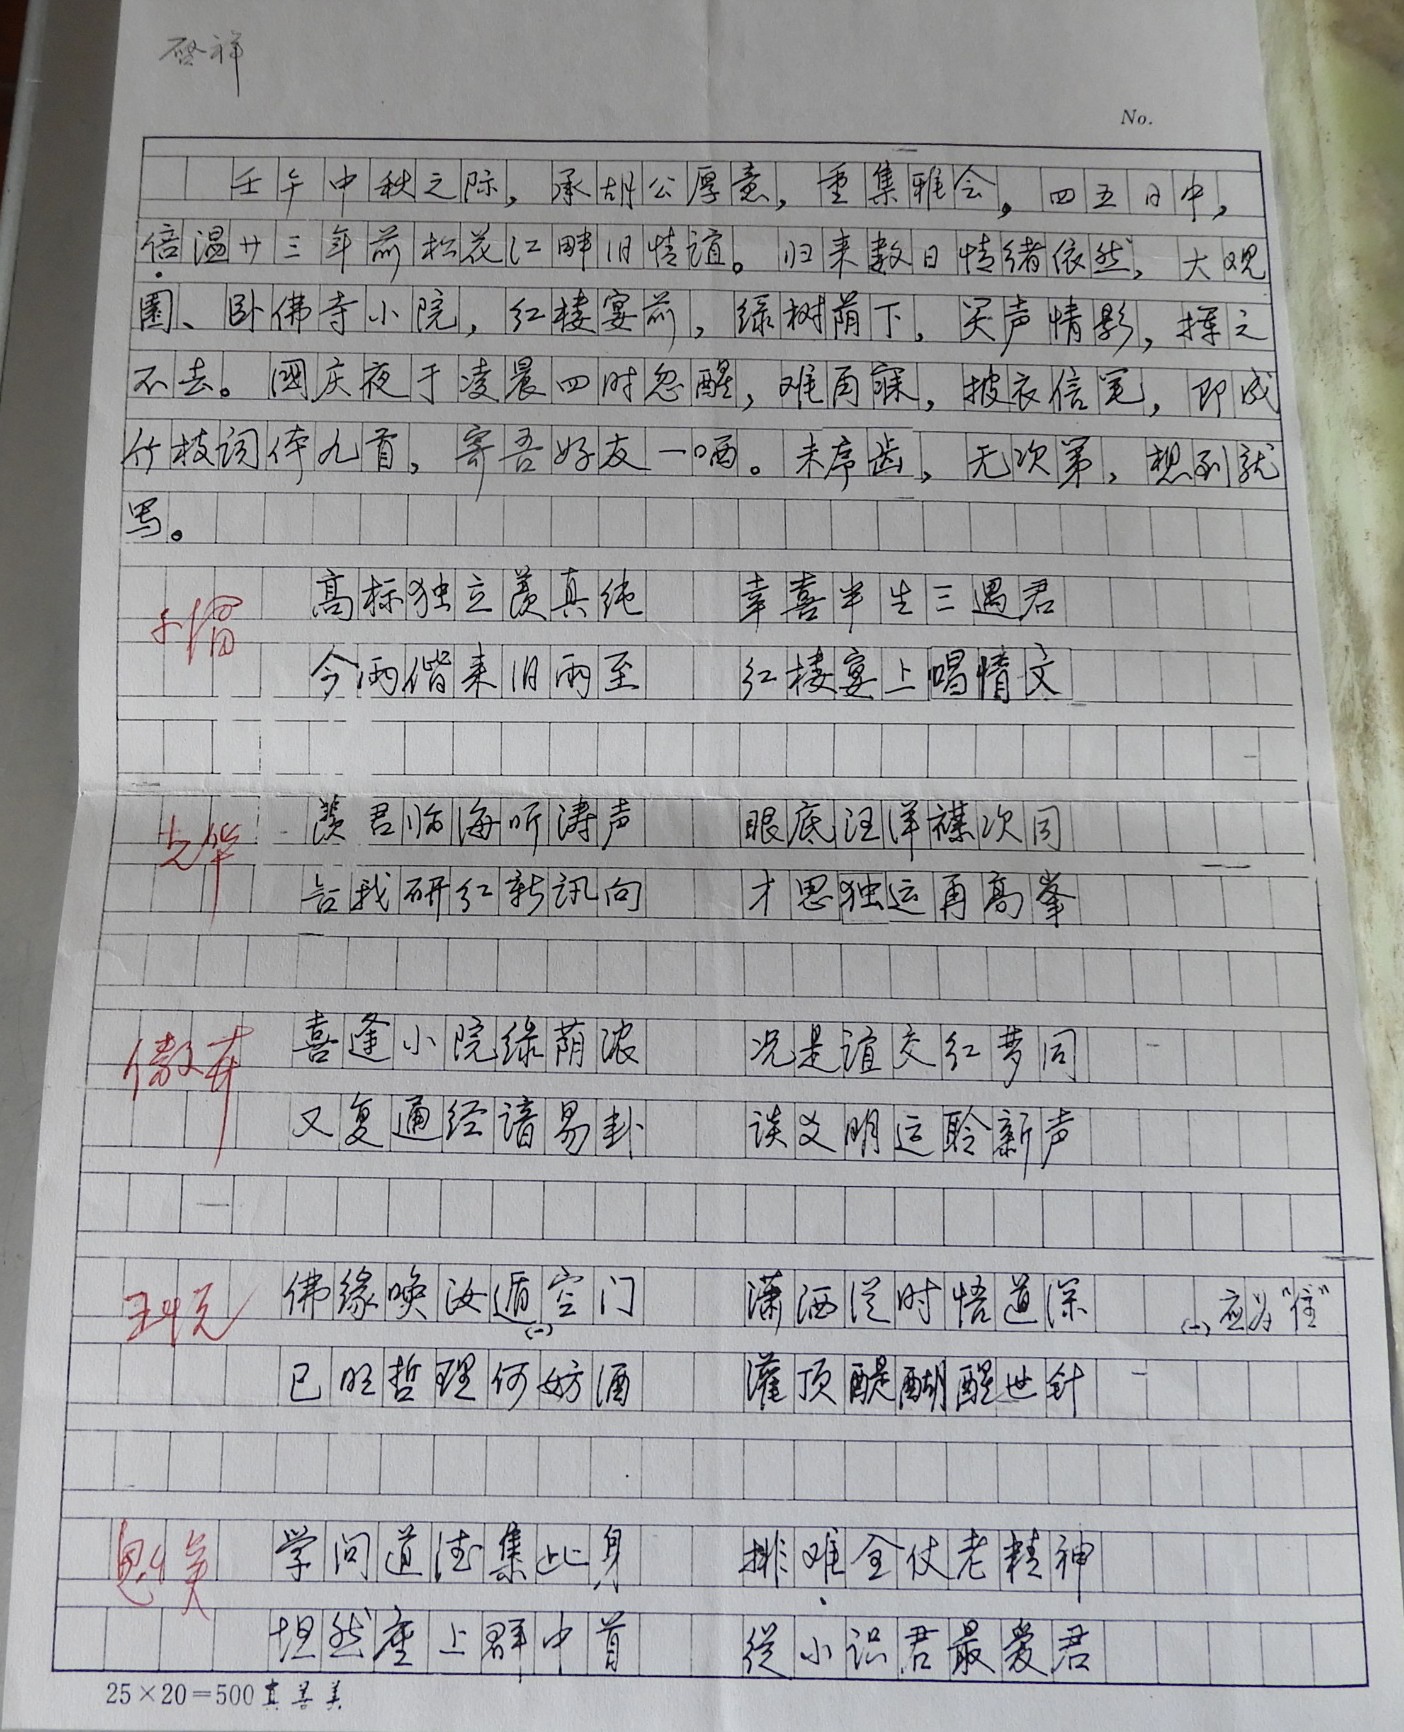 启祥
No.
壬午中秋之际，承胡公厚意，重集雅会，四五日中，
倍温廿三年前松花江畔旧情谊。归来数日情绪依然，大观
園、卧佛寺小院，红楼宴前，绿树荫下，笑声情影，挥之
不去。國庆夜于凌晨四时忽醒，难再寐，披衣信笔，即成
竹枝词体九首，寄吾好友一哂。未序齿，无次第，想到就
写。
高标独立羡真纯 幸喜半生三遇君
今雨偕来旧雨至 红楼宴上唱情文
羡君临海听涛声 眼底汪洋襟次同
告我研红新訊向 才思独运再高峯
喜逢小院绿荫浓 况是谊交红梦同
又复通经谙易卦 谈文明运聆新声
佛缘唤汝遁空门 潇洒从时悟道深 (一)应为"住"
(一)
已旺哲理何妨酒 灌顶醍醐醒世针
学问道德集此身 排难全仗老精神
坦然座上群中首 從小识君最爱君
25×20=500 真善美